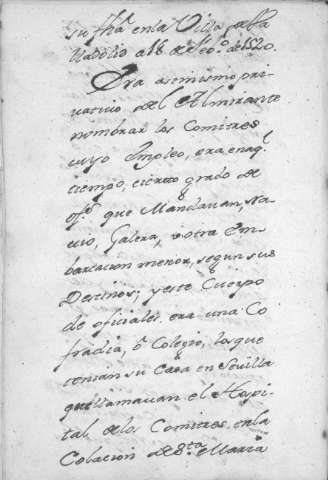 su fha en la Villa de Va
lladolid a 18 de Febo. de 1520.
Era asimismo pri-
vativo del Almirante
nombrar los Comitres
cuyo Empleo, era en aql
tiempo, cierto grado de
ofs. que Mandavan, Na
vio, Galera, u otra Em
barcacion menor, segun sus
Destinos; y este Cuerpo
de oficiales era una Co
fradia, ô Colegio, los que
tenian su Casa en Sevilla
que llamavan el Hospi-
tal de los Comitres, en la
Colacion de Sta. Maria